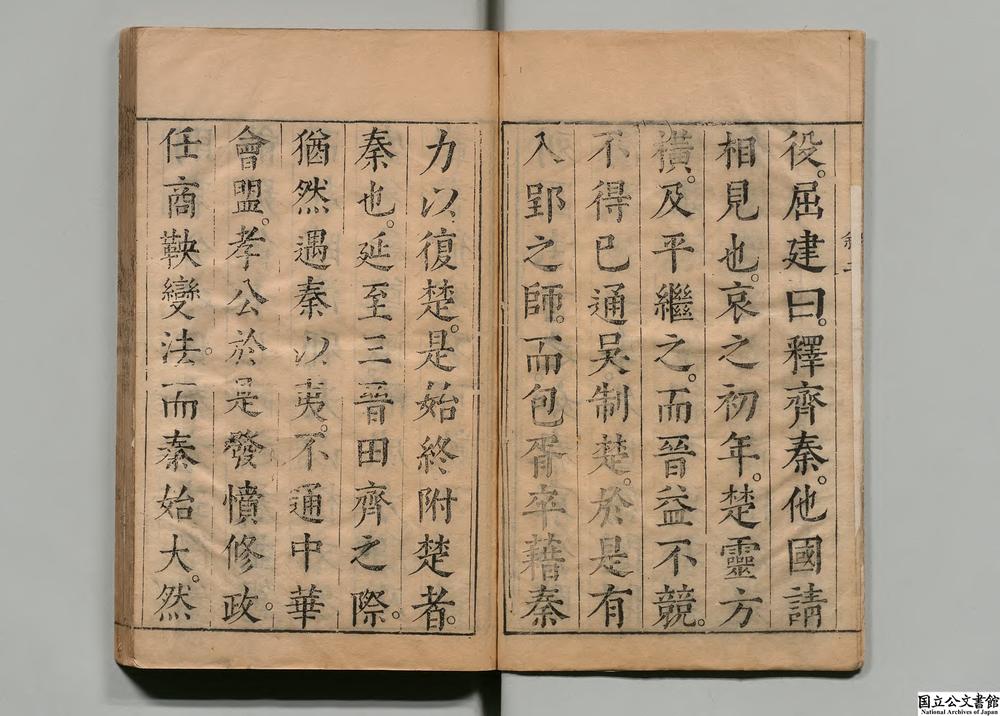 役。屈建曰。釋齊秦。他國請
相見也。哀之初年。楚靈方
橫。及平繼之。而晉益不競。
不得已通吳制楚。於是有
入郢之師。而包胥卒藉秦
力以復楚。是始終附楚者。
秦也。延至三晉田齊之際。
猶然遇秦以夷。不通中華
會盟。孝公於是發憤修政。
任商鞅變法。而秦始大。然
国立公文書館
National Archives of Japan